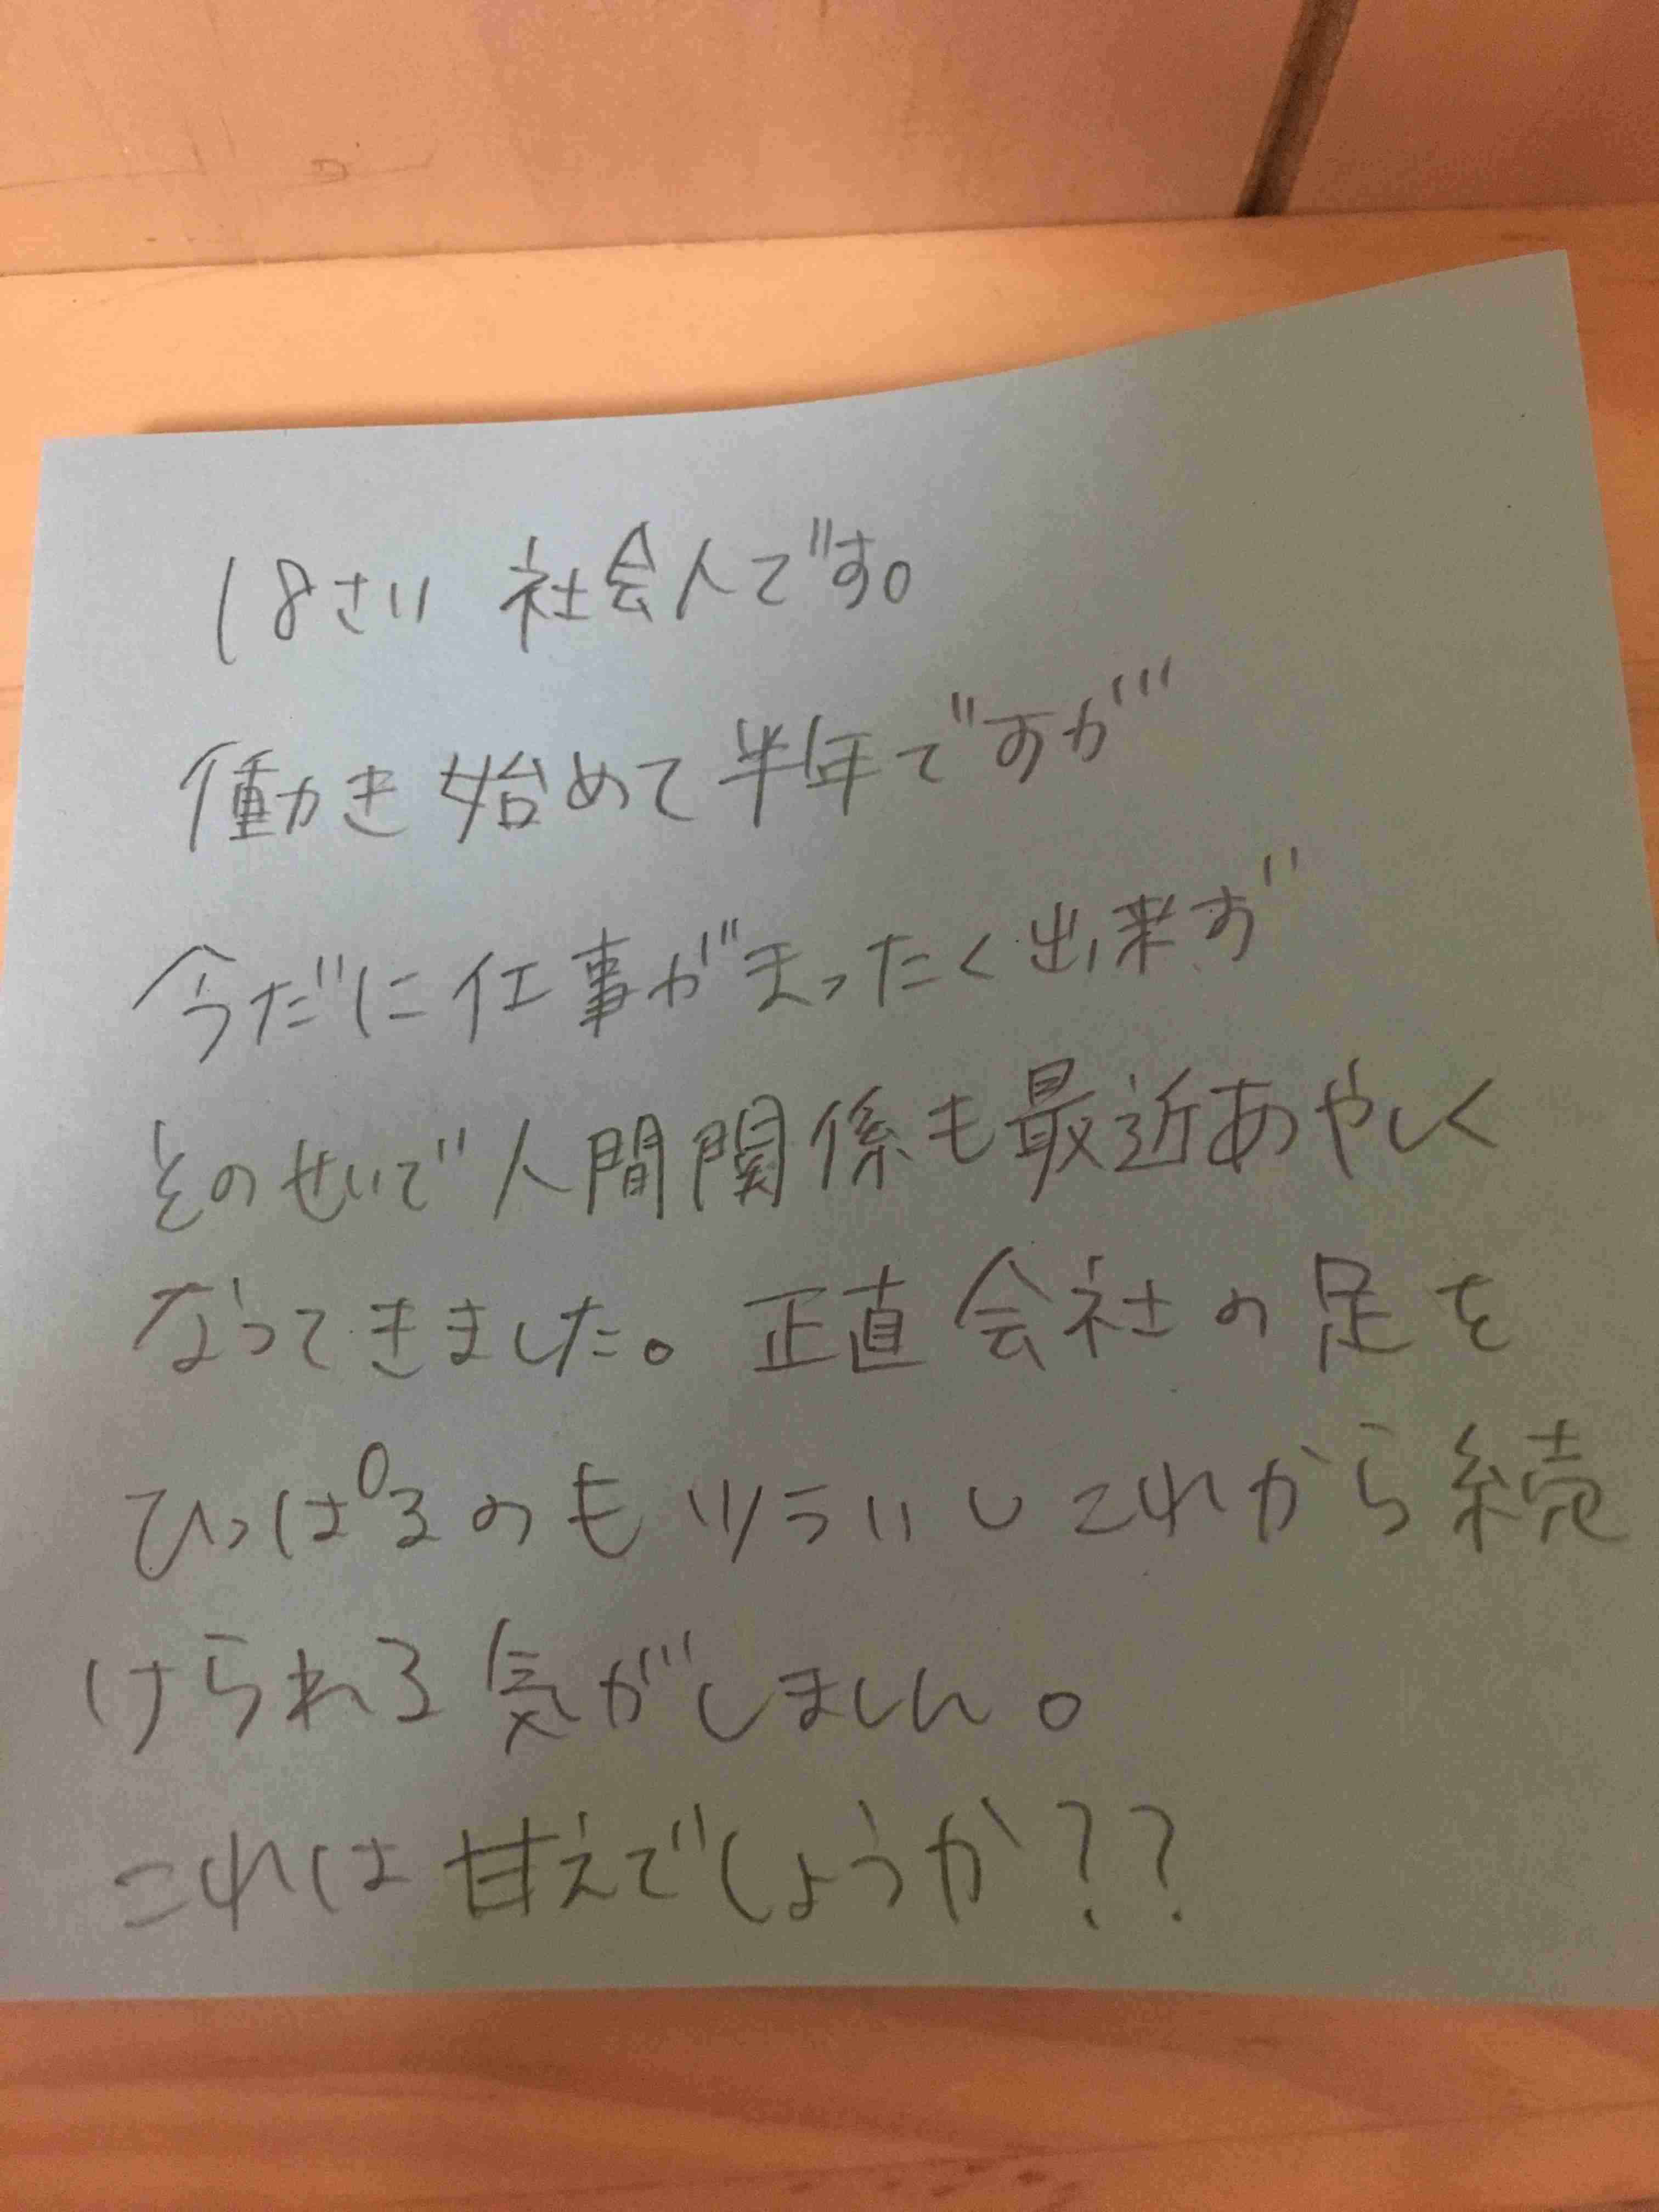 18さい 社会人です。
働き始めて半年ですが
今だに仕事がまったく出来ず
そのせいで人間関係も最近あやしく
なってきました。正直会社の足を
ひっぱるのもツラいしこれから続
けられる気がしません。
これは甘えでしょうか??